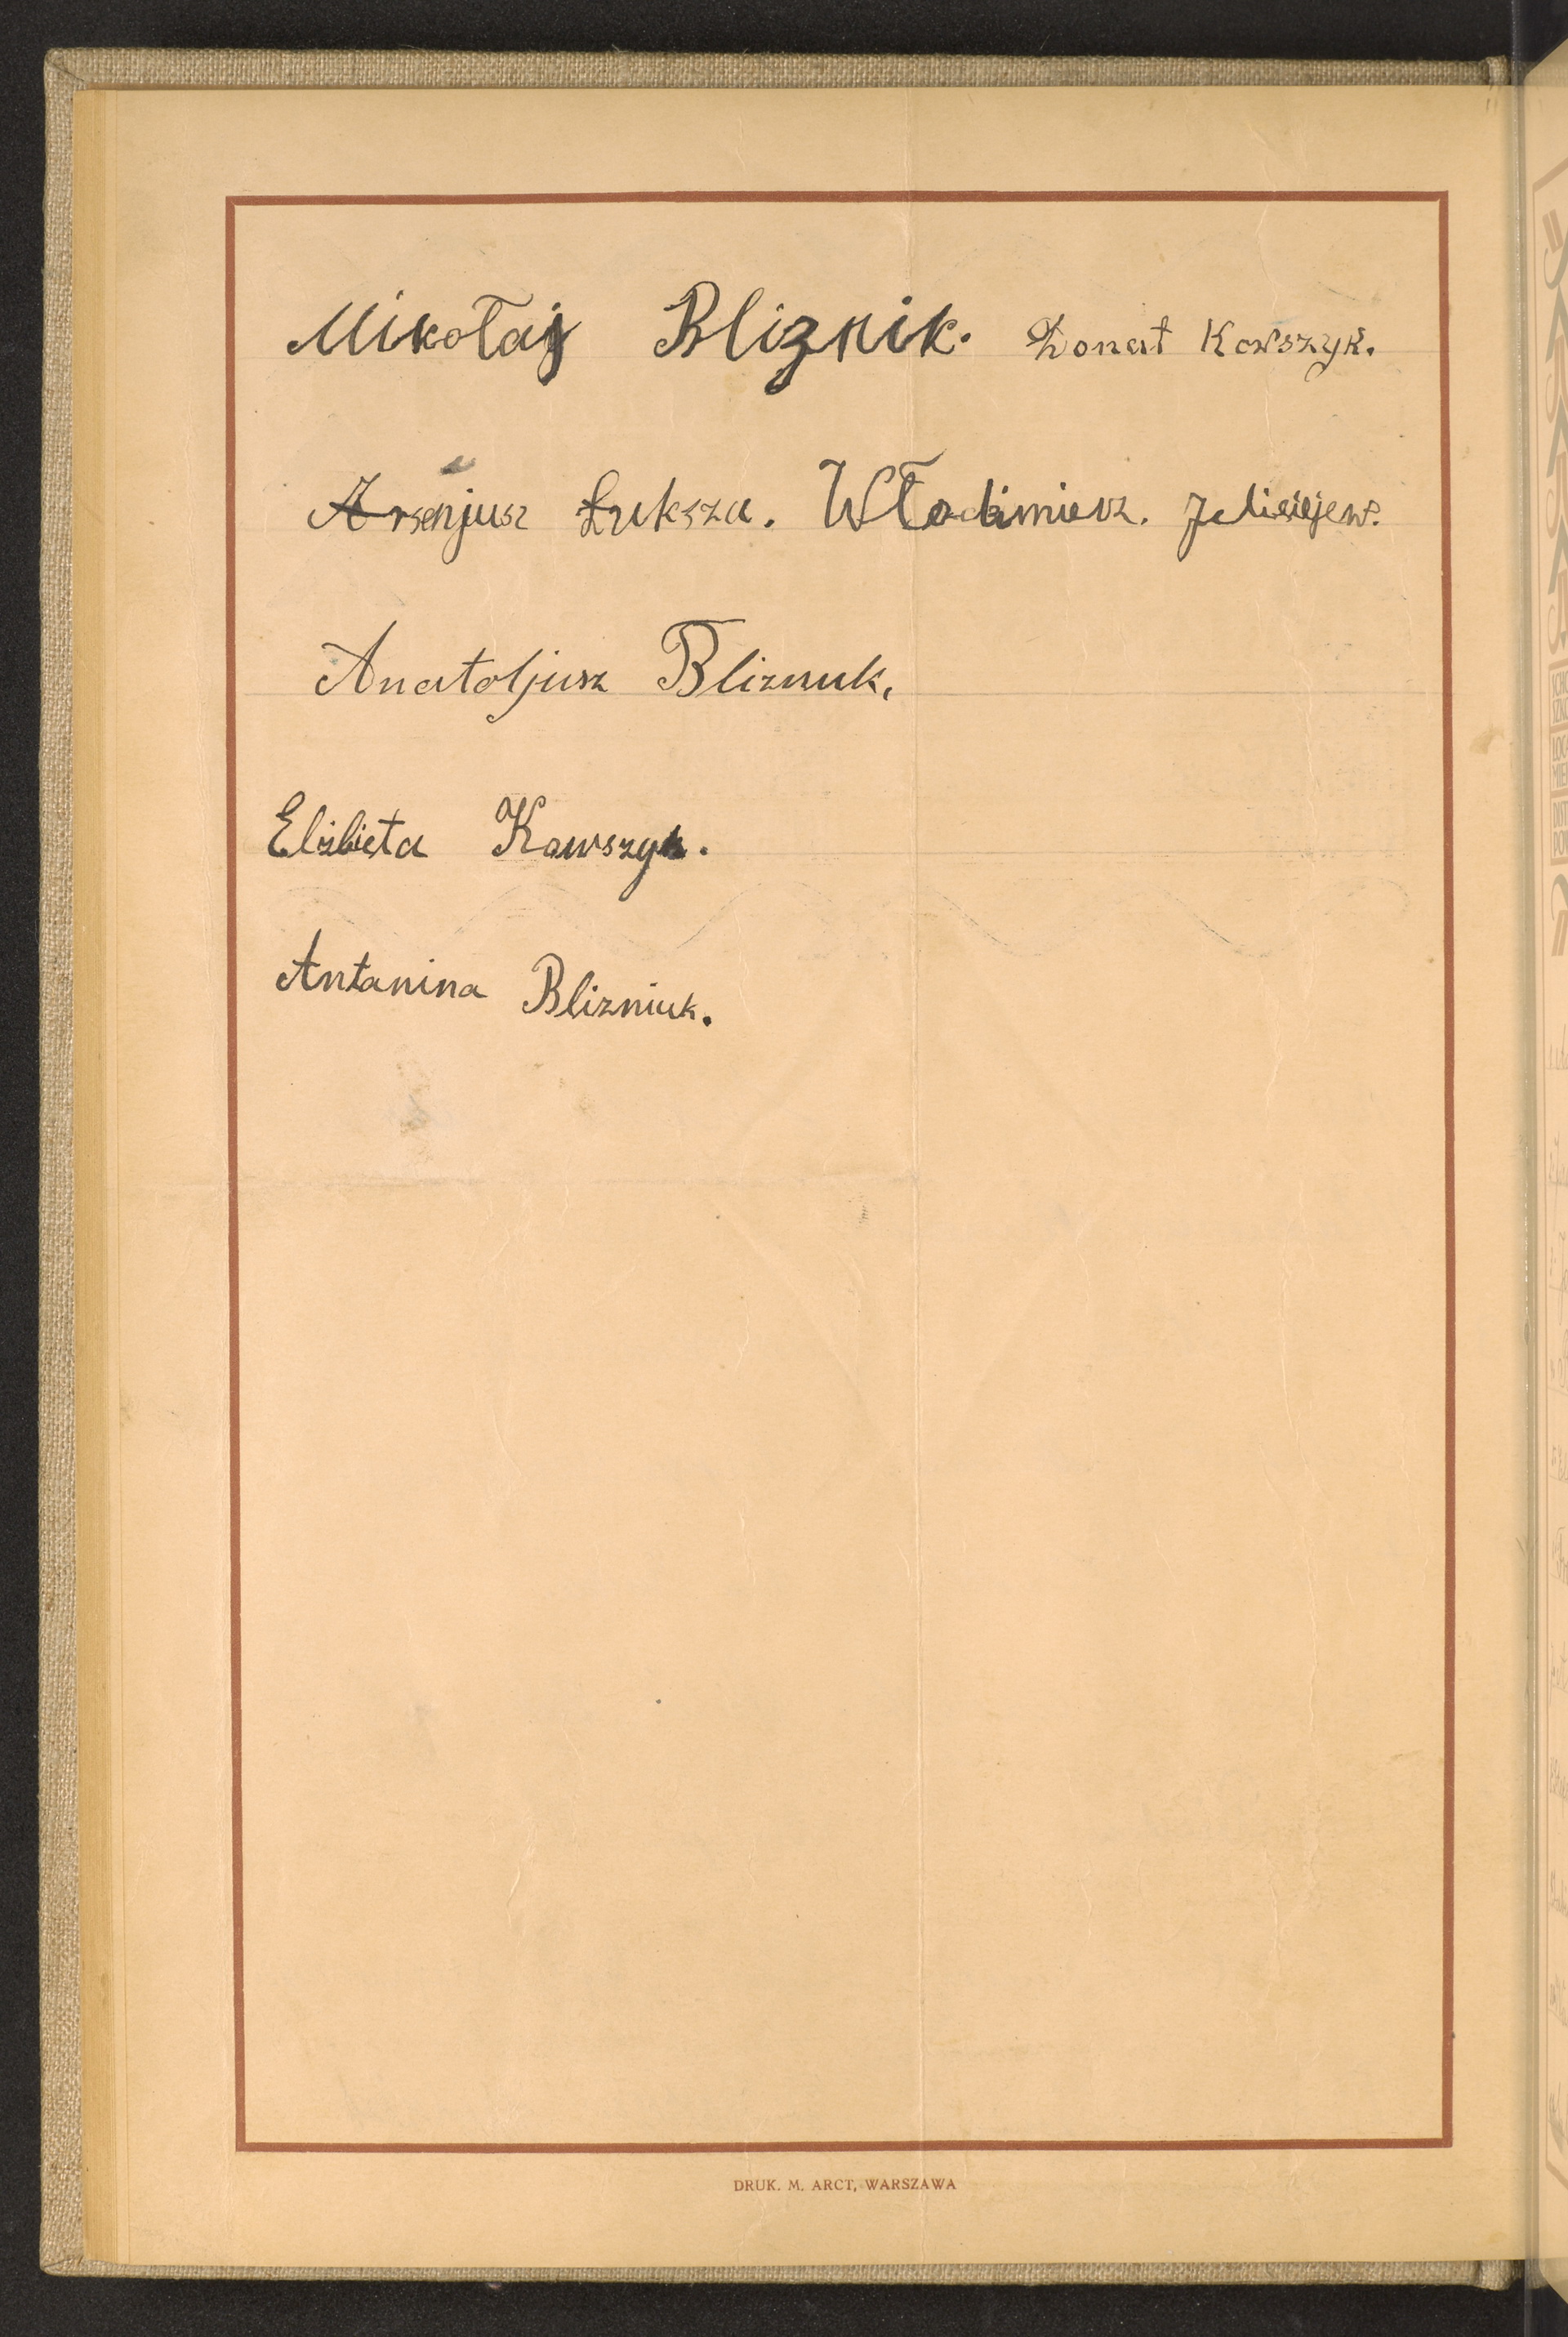 Mikołaj Bliznik. Donat Kowszyk.
Arsenjusz Łuksza. Włodimierz. Jelisiejew.
Anatoljusz Bliznuk.
Elżbieta Kowszyk.
Antanina Blizniuk.
DRUK. M. ARCT, WARSZAWA